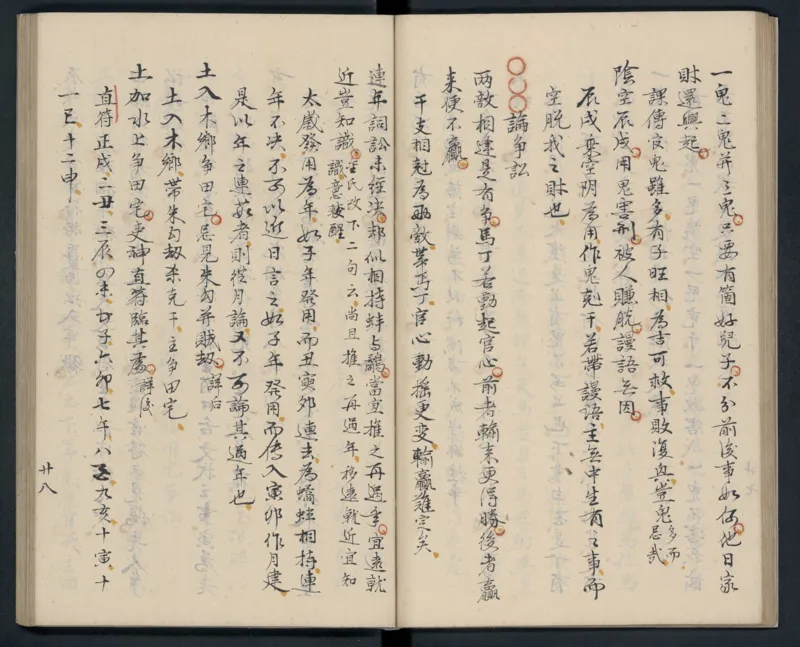 一鬼二鬼并三鬼只要有箇好兒子不分前後事如何他日家
財還興起
課傳官鬼雖多有子旺相為吉可救事敗復興豈鬼多而忌哉
陰空辰戌用鬼害刑被人賺脱謾語無因
辰戌乘空陰為用作鬼尅干若帶謾語主無中生有之事而
空脱我之財也
〇〇〇論争訟
两敵相連是有争馬丁若動起官心前者輸来更得勝後者贏
来便不贏
干支相尅為两敵帯馬丁官心動摇更変輸贏難定矣
連年詞訟未經决却似相持蚌与鷸當宜推之再過年宜遠就
近豈知識 王氏改下二句云尚且推之再過年移遠就近宜知識意披醒
太歲發用為年如子年發用而丑寅夘連去為鷸蚌相持連
年不决不可以近日言之如子年發用而傳入寅卯作月建
是以年之連茹者則從月論又不可論其過年也
土入木鄉争田宅忌見朱勾并賊刼 詳后
土入木鄉帯朱勾刼杀克干主争田宅
土加水上争田宅更神直符臨其處 詳後
直符正戌二丑三辰四未五子六卯七午八 九亥十寅十
一巳十二申
廿八